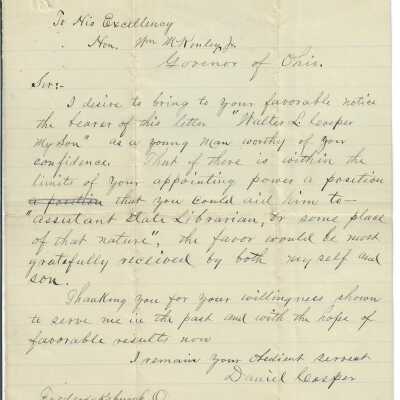 To His Excellency
Hon. Wm McKinley, Jr.
Govenor of Ohio.
Sir:-
I desire to bring to your favorable notice
the bearer of this letter "Walter L. Cosper
My Son" as a young man worthy of your
confidence. That if there is within the
limits of your appointing power a position
a position that you could aid him to—
"assistant State Librarian, or some place
of that nature", the favor would be most
gratefully received by both my self and
son.
Thanking you for your willingness shown
to serve me in the past and with the hope of
favorable results now
I remain your obedient servent
Daniel Cosper
Fredericksburgh O.